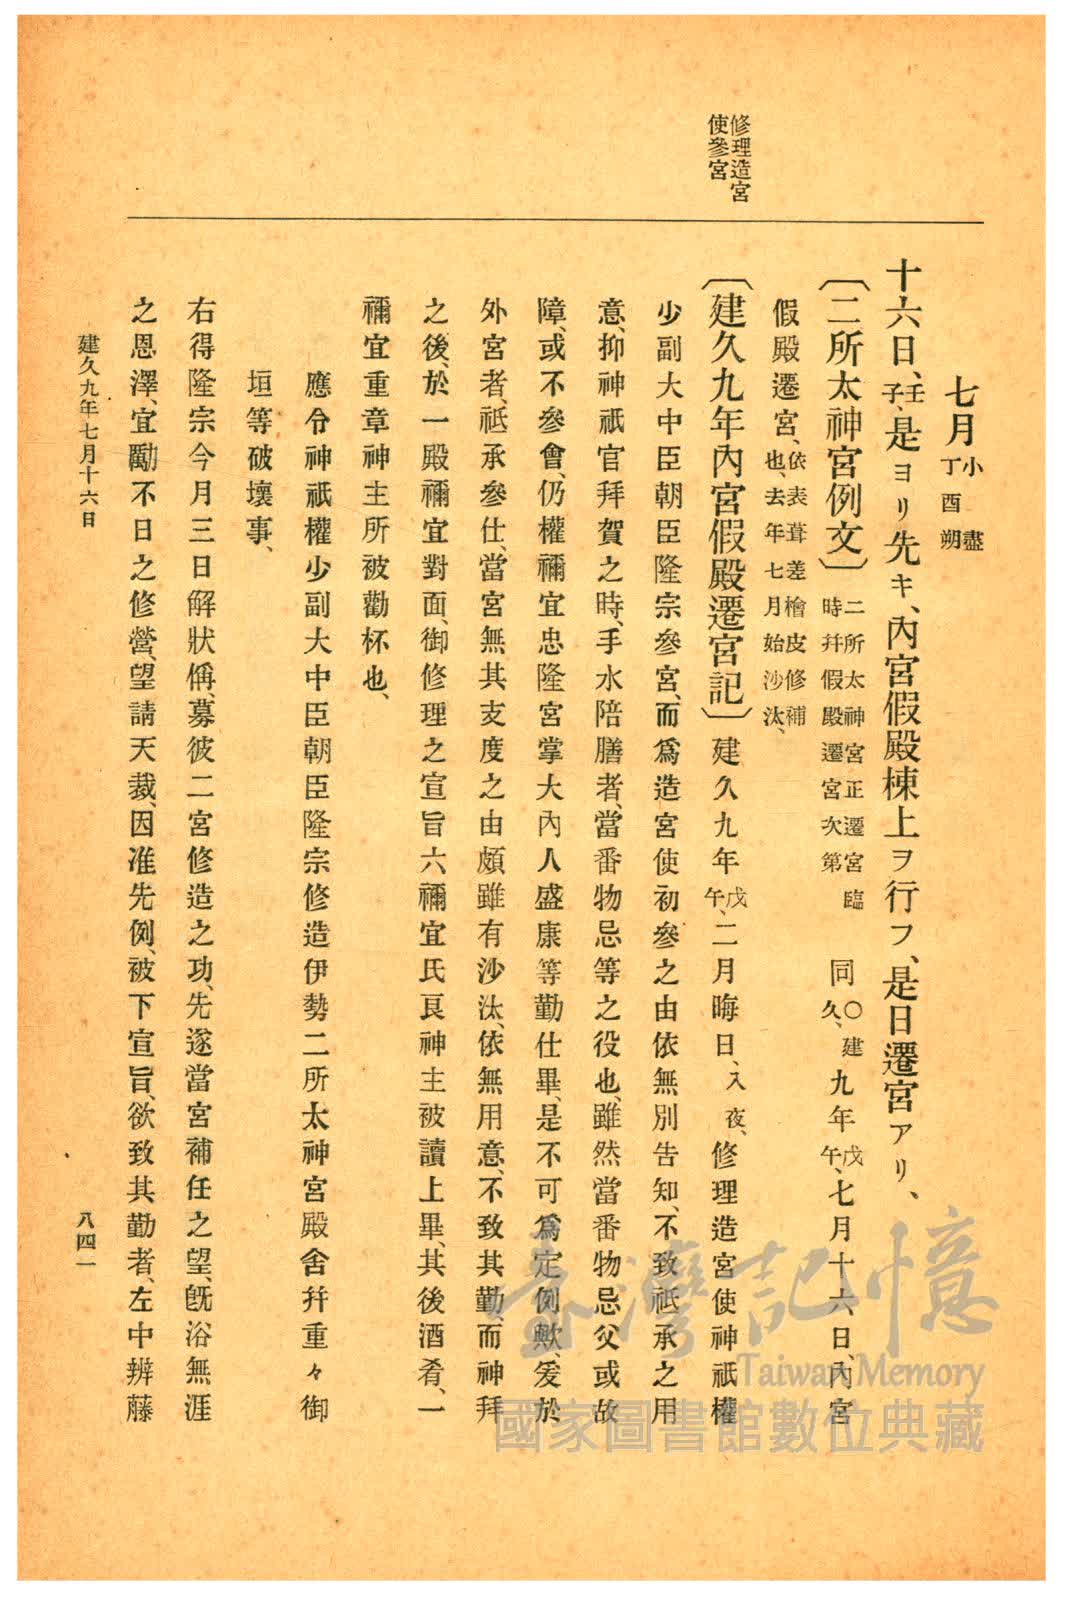 修理造宮
使參宮
七月小盡
丁酉朔
十六日、壬子、是ヨリ先キ、內宮假殿棟上ヲ行フ、是日遷宮アリ、
〔二所太神宮例文〕二所太神宮正遷宮臨時幷假殿遷宮次第 同〇建久、九年戊午、七月十六日、內宮
假殿遷宮、依表葺差檜皮修補也、去年七月始沙汰、
〔建久九年內宮假殿遷宮記〕建久九年戊午、二月晦日、入夜、修理造宮使神祇權
少副大中臣朝臣隆宗參宮、而爲造宮使初參之由依無別告知、不致祇承之用
意、抑神祇官拜賀之時、手水陪膳者、當番物忌等之役也、雖然當番物忌父或故
障、或不參會、仍權禰宜忠隆、宮掌大內人盛康等勤仕畢、是不可爲定例歟、爰於
外宮者、祗承參仕、當宮無其支度之由頗雖有沙汰、依無用意、不致其勤、而神拜
之後、於一殿禰宜對面、御修理之宣旨六禰宜氏良神主被讀上畢、其後酒肴、一
禰宜重章神主所被勸杯也、
應令神祇權少副大中臣朝臣隆宗修造伊勢二所太神宮殿舍幷重々御
垣等破壞事、
右得隆宗今月三日解狀偁、募彼二宮修造之功、先遂當宮補任之望、旣浴無涯
之恩澤、宜勵不日之修營、望請天裁、因准先例、被下宣旨、欲致其勤者、左中辨藤
建久九年七月十六日
八四一
臺灣記憶
Taiwan Memory
國家圖書館數位典藏